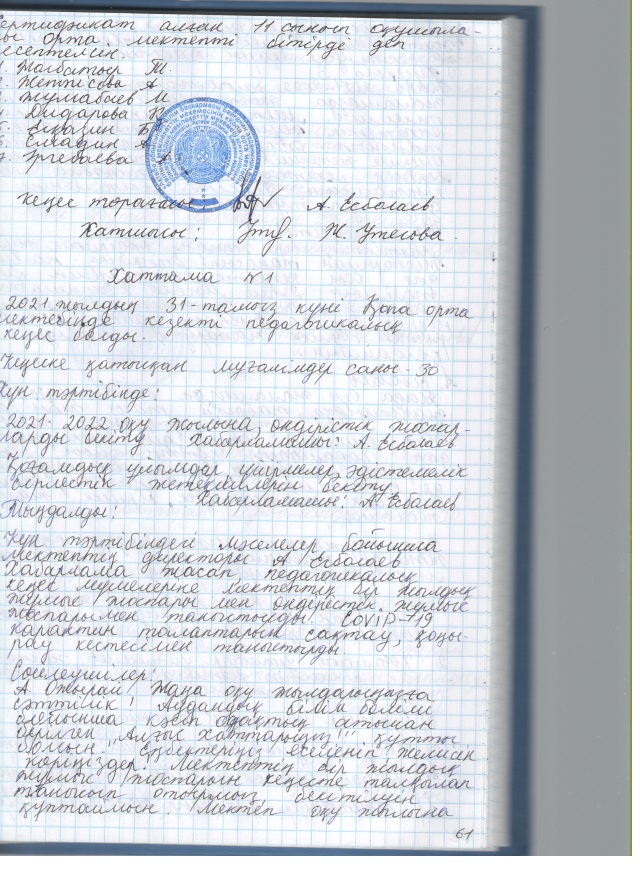 сертификат алған 11 сынып оқушыла-
ры орта мектепті бітірді деп
есептелсін.
Жолбатыр М.
Жетпісова А
Жумабаев М
Дидарова К
Б.
Елмадин А
Ургебаева А
Кеңес төрағасы: А. Есболаев
Хатшысы: Ж. Утесова.
Хаттама №1
2021 жылдың 31-тамыз күні Қоға орта
мектебінде кезекті педагогикалық
кеңес болды.
Кеңеске қатысқан мұғалімдер саны - 30
Күн тәртібінде:
2021-2022 оқу жылына өндірістік жоспар-
ларды бекіту Хабарламашы: А Есболаев
Қоғамдық ұйымдар үйірмелер, әдістемелік
бірлестік жетекшілерін бекіту
Хабарламашы: А Есболаев
Тыңдалды:
Күн тәртібіндегі мәселелер бойынша
мектептің директоры А Есболаев
хабарлама жасап, педагогикалық
кеңес мүшелеріне мектептің бір жылдық
жұмыс жоспары мен өндірістік жұмыс
жоспарымен таныстырды. COVID-19
карантин талаптарын сақтау, қоңы-
рау кестесімен таныстырды
Сөйлеушілер:
А. Жаңа оқу жылдарыңызға
сәттілік! Аудандық білім бөлімі
кәсіп одақтың атынан
берілген „Алғыс хаттарыңыз" құтты
болсын. Еңбектеріңіз еселеніп жемісін
көріңіздер! Мектептің бір жылдық
жұмыс жоспарын кеңесте талқылап
танысып отырмыз, бекітілуін
құптаймын. Мектеп оқу жылына
61